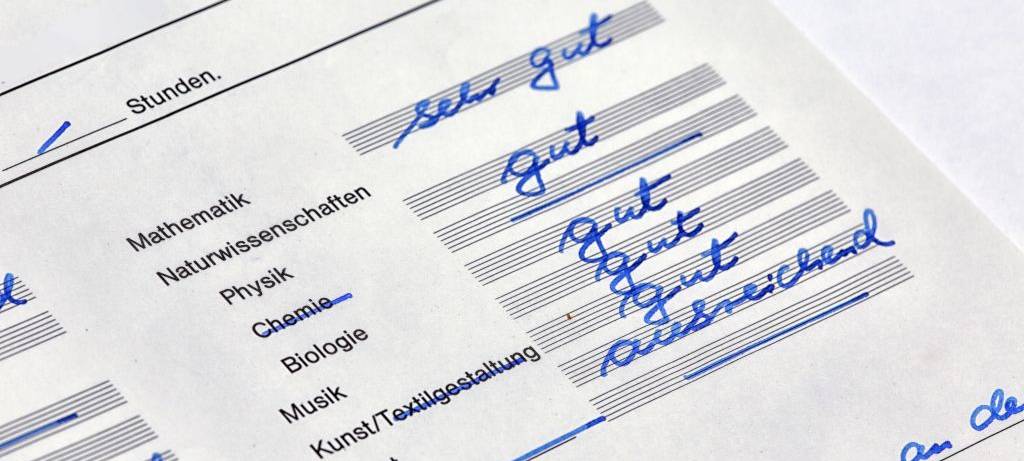 Stunden.
Mathematik sehr gut
Naturwissenschaften
Physik gut
Chemie
Biologie gut
Musik gut
Kunst/Textilgestaltung gut
ausreichend
an de